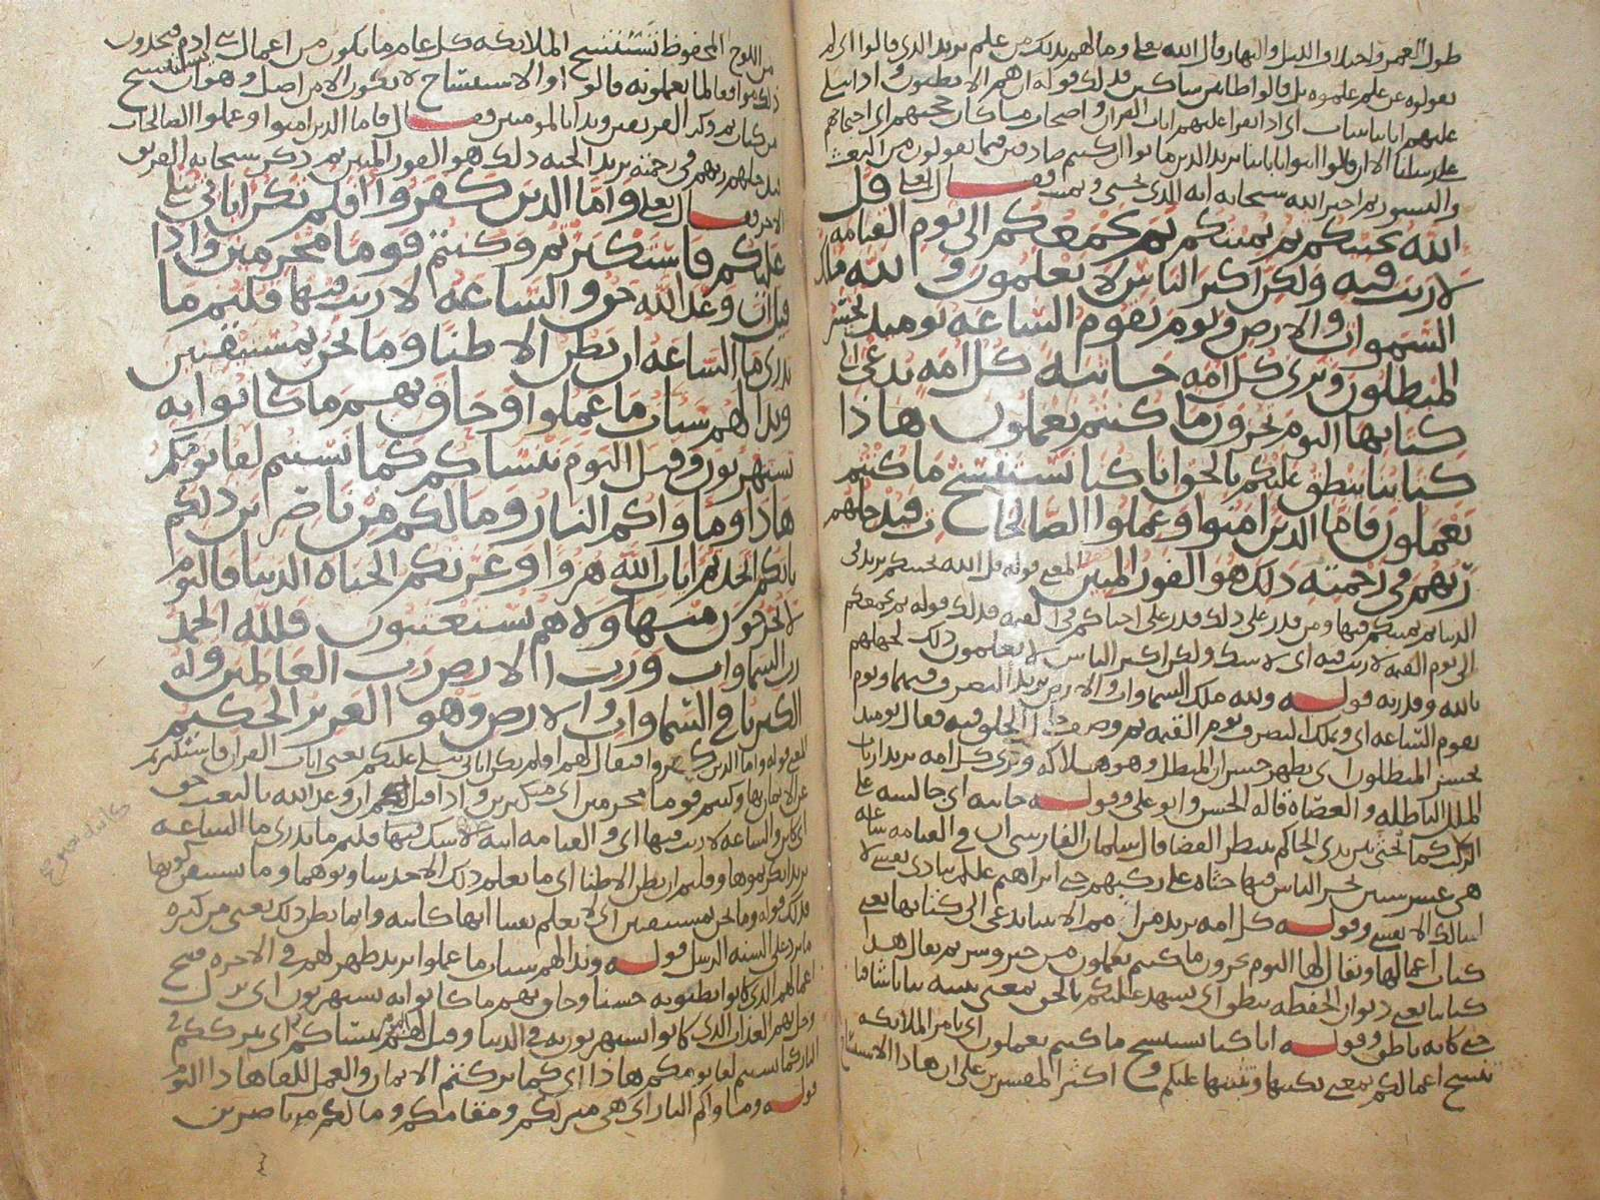 طول العمر واختلاف الليل والنهار وقال الله تعلى وما لهم بذلك من علم يريد الذي قالوا اي لم
يقولوه عن علم علموه بل قالوا ظانين شاكين فذلك قوله ان هم الا يظنون واذا تتلى
عليهم اياتنا بينات اي اذا تقرا عليهم ايات القران واضحات ما كان حجتهم اي احتجاجهم
على رسلنا الا ان قالوا ائتوا بابائنا يريد الذين ماتوا ان كنتم صادقين فيما تقولون من البعث
والنشور ثم اخبر الله سبحانه انه الذي يحيي ويميت فقال تعلى قل
الله يحييكم ثم يميتكم ثم يجمعكم الى يوم القيامه
لا ريب فيه ولكن اكثر الناس لا يعلمون ولله ملك
السموات والارض ويوم تقوم الساعه يوميذ يخسر
المبطلون وترى كل امه جاثيه كل امه تدعى الى
كتابها اليوم تجزون ما كنتم تعملون هاذا
كتابنا ينطق عليكم بالحق انا كنا نستنسخ ما كنتم
تعملون فاما الذين امنوا وعملوا الصالحات فيدخلهم
ربهم في رحمته ذلك هو الفوز المبين المعنى قوله قل الله يحييكم يريد في
الدنيا ثم يميتكم فيها ومن قدر على ذلك قدر على احياكم في القيمه فذلك قوله ثم يجمعكم
الى يوم القيمه لا ريب فيه اي لا شك ولكن اكثر الناس لا يعلمون ذلك لجهلهم
بالله وقدرته قوله ولله ملك السموات والارض يريد التصرف فيهما ويوم
تقوم الساعه اي ويملك التصرف يوم القيمه ثم وصف الخلق فيه فقال يوميذ
يخسر المبطلون اي يظهر خسران المبطل وهو هلاكه وترى كل امه يريد ارباب
الملل الباطله والعصاة قاله الحسن وابو علي وقوله جاثيه اي جالسه على
الركب كما الجثي بين يدي الحاكم ينتظر القضا قال سلمان الفارسي ان في القيامه ساعه
هي عشر سنين يخر الناس فيها جثاة على ركبهم حتى ابراهيم عليلم ينادي نفسي لا
اسالك الا نفسي وقوله كل امه يريد من الامم الا ميا تدعى الى كتابها يعني
كتاب اعمالها ويقال لها اليوم تجزون ما كنتم تعملون من خير وشر ثم يقال هذا
كتابنا يعني ديوان الحفظه ينطق اي يشهد عليكم بالحق بمعنى يبينه بيانا شافيا
حتى كانه ناطق وقوله انا كنا نستنسخ ما كنتم تعملون اي نامر الملائكه
بنسخ اعمالكم بمعنى بكتبها وتثبتها عليكم واكثر المفسرين على ان هاذا الاستنساخ
من اللوح المحفوظ تستنسخ الملائكه كل عام ما يكون من اعمال بني ادم فيجدون
ذلك موافقا لما يعملونه قالوا والاستنساخ لا يكون الا من اصل وهو ان يستنسخ
من كتاب ثم ذكر الفريقين وبدا بالمومنين فقال فاما الذين امنوا وعملوا الصالحات
فيدخلهم ربهم في رحمته يريد الجنه ذلك هو الفوز المبين ثم ذكر سبحانه الفريق
الاخر فقال تعلى واما الذين كفروا افلم تكن اياتي تتلى
عليكم فاستكبرتم وكنتم قوما مجرمين واذا
قيل ان وعد الله حق والساعه لا ريب فيها قلتم ما
ندري ما الساعه ان نظن الا ظنا وما نحن بمستيقنين
وبدا لهم سيات ما عملوا وحاق بهم ما كانوا به
يستهزيون وقيل اليوم ننساكم كما نسيتم لقا يومكم
هاذا وماواكم النار وما لكم من ناصرين ذلكم
بانكم اتخذتم ايات الله هزوا وغرتكم الحياه الدنيا فاليوم
لا يخرجون منها ولا هم يستعتبون فلله الحمد
رب السماوات ورب الارض رب العالمين وله
الكبريا في السماوات والارض وهو العزيز الحكيم
المعنى قوله واما الذين كفروا فيقال لهم افلم تكن اياتي تتلى عليكم يعني ايات القران فاستكبرتم
عن الايمان بها وكنتم قوما مجرمين اي متكبرين واذا قيل لكم ان وعد الله بالبعث حق
اي كائن والساعه لا ريب فيها اي والقيامه اتيه لا شك فيها قلتم ما ندري ما الساعه
يريد انكرتموها وقلتم ان نظن الا ظنا اي ما نعلم ذلك الا حدسا وتوهما وما نستيقن كونها
فذلك قوله وما نحن بمستيقنين اي لا نعلم يقينا انها كائنه وانما نظن ذلك يعني من كثره
ما يرد على السنه الرسل قوله وبدا لهم سيات ما عملوا يريد ظهر لهم في الاخره قبح
اعمالهم الذي كانوا يظنونه حسنا وحاق بهم ما كانوا به يستهزيون اي نزل
وحل بهم العذاب الذي كانوا يستهزيون به في الدنيا وقيل لهم اليوم ننساكم اي نترككم في
النار كما نسيتم لقا يومكم هاذا اي كما تركتم الايمان والعمل للقا هاذا اليوم
قوله وماواكم النار اي هي منزلكم ومقامكم وما لكم من ناصرين